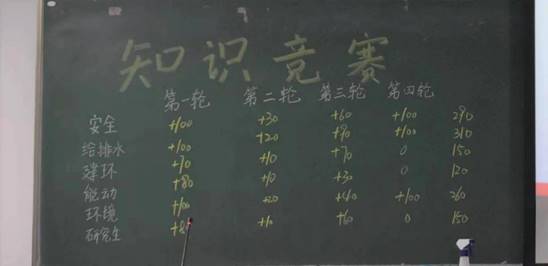 知识竞赛
第一轮 第二轮 第三轮 第四轮
安全 +100 +30 +60 +100 290
给排水 +100 +20 +90 +100 310
建环 +70 +10 +70 0 150
能动 +80 +10 +30 0 120
环境 +100 +20 +40 +100 260
研究生 +80 +10 +60 0 150